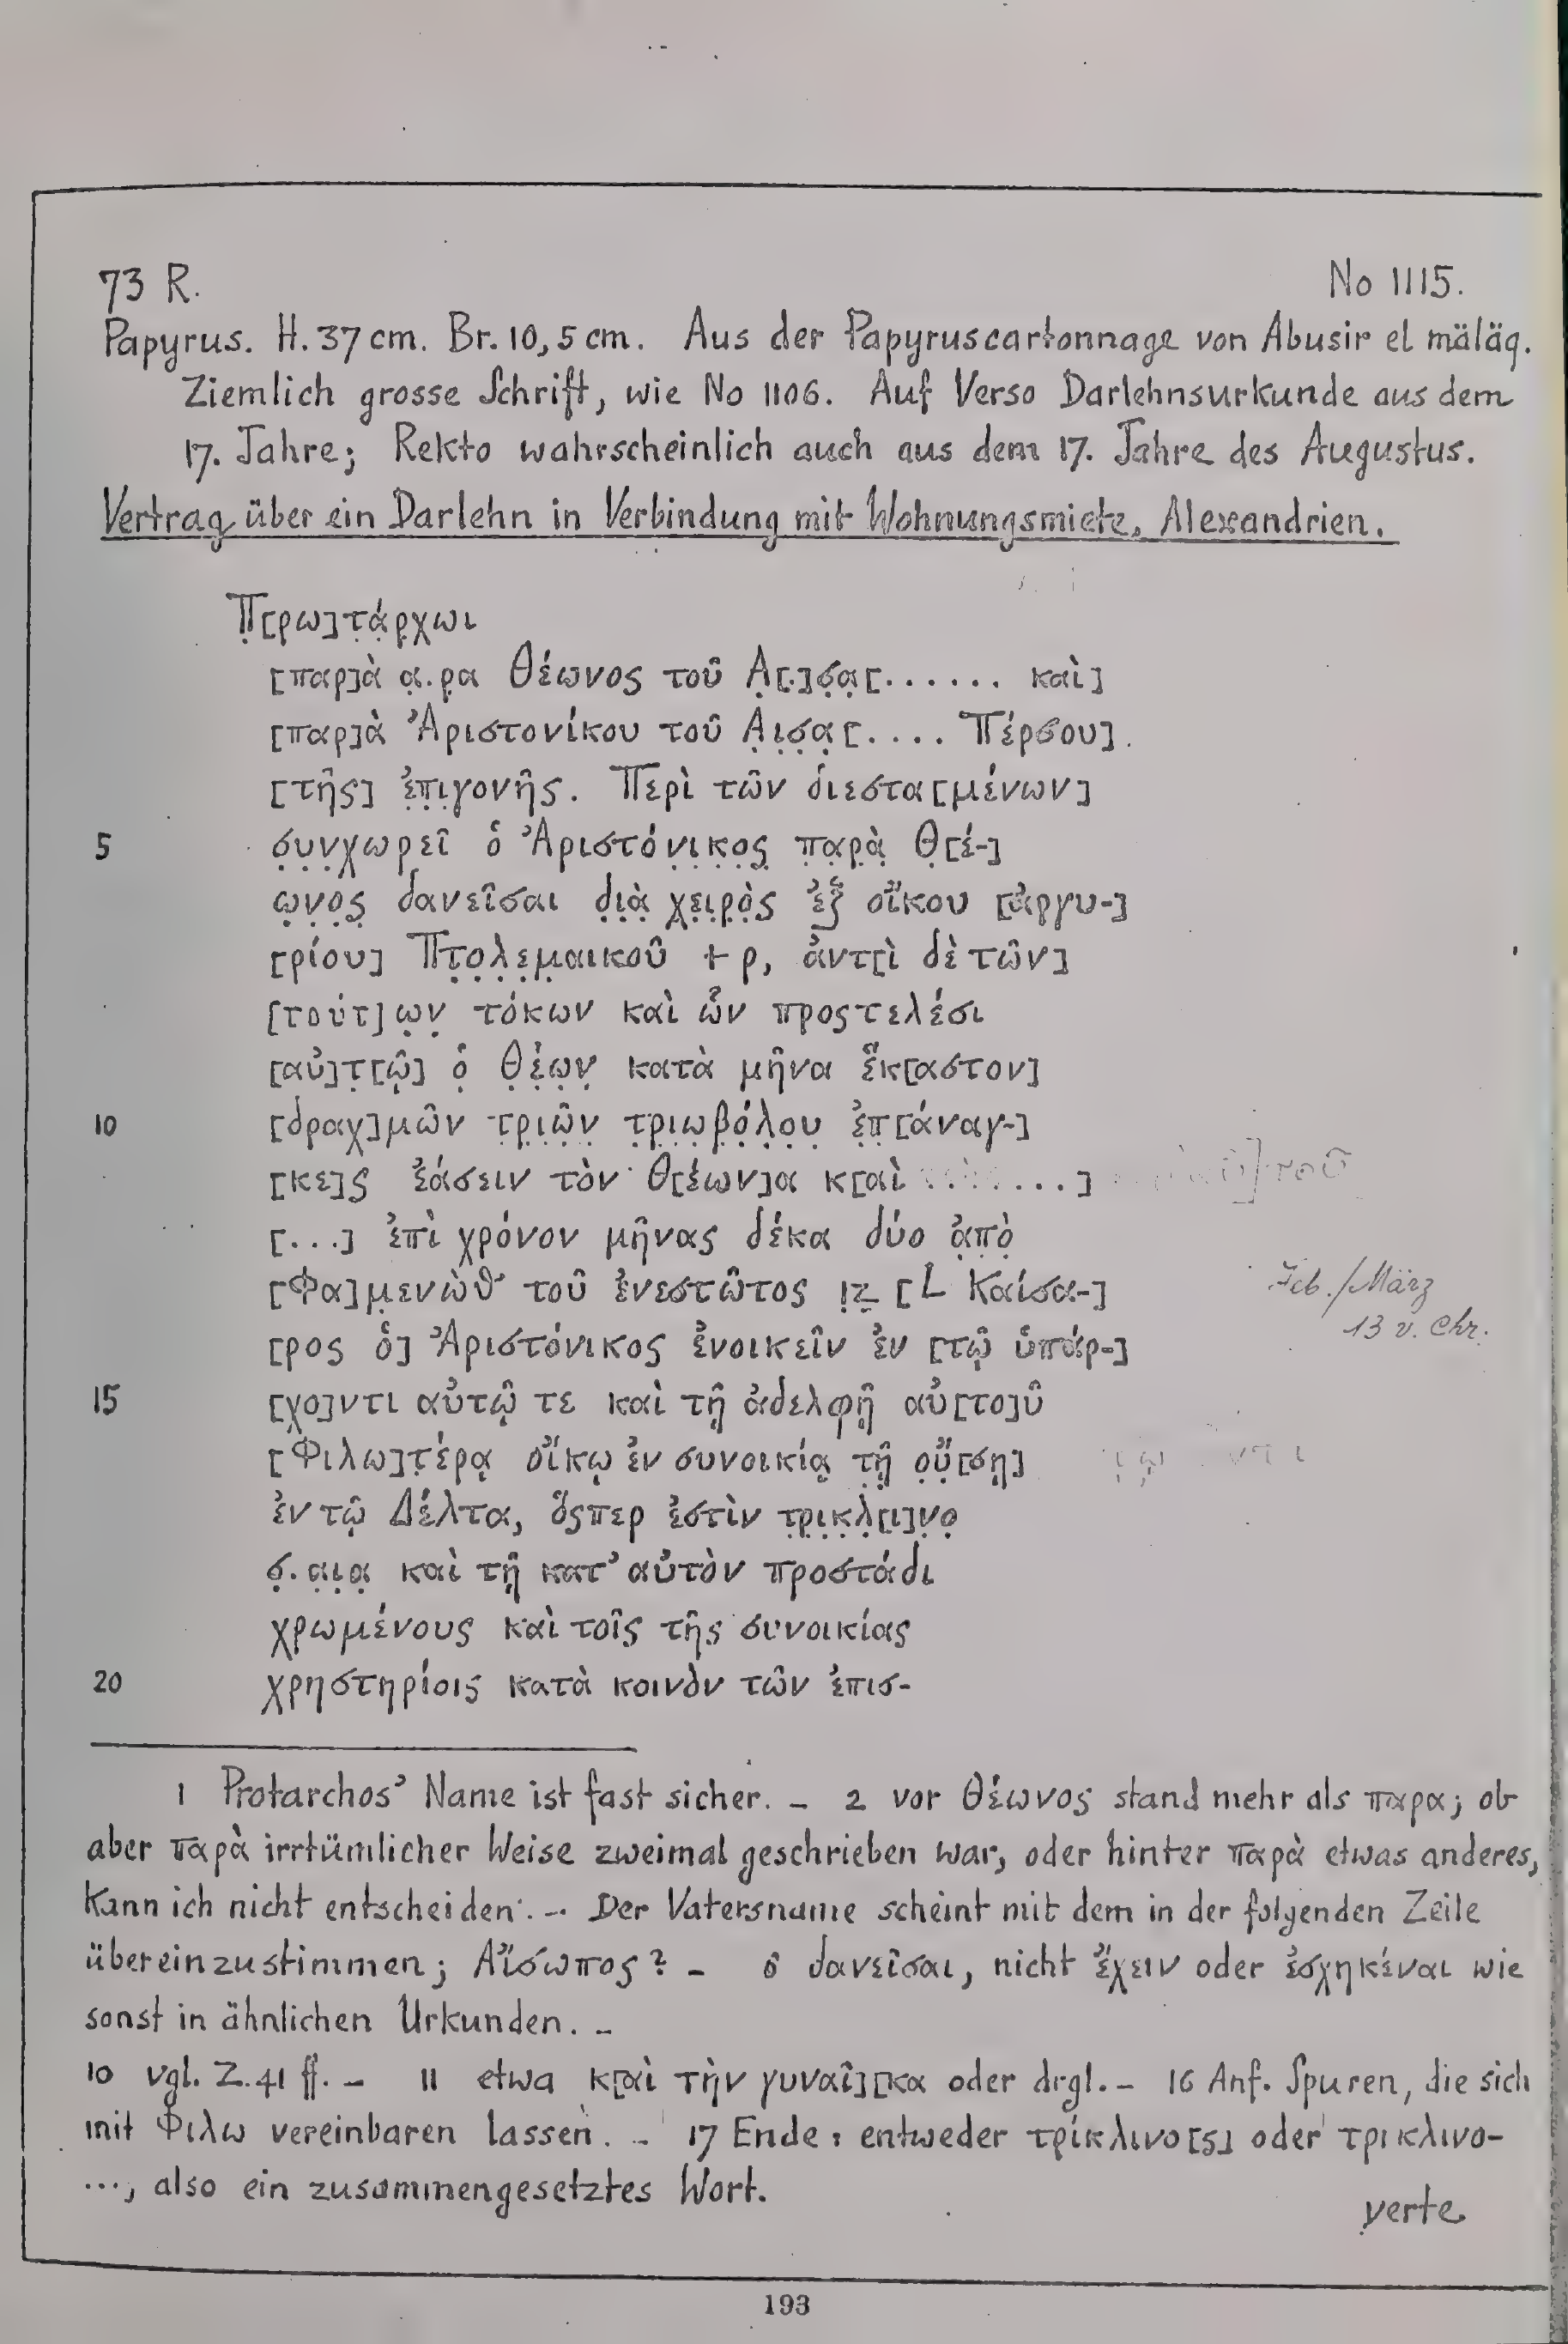 73 R. No 1115.
Papyrus. H. 37 cm. Br. 10,5 cm. Aus der Papyruscartonnage von Abusir el mäläq.
Ziemlich grosse Schrift, wie No 1106. Auf Verso Darlehnsurkunde aus dem
17. Jahre; Rekto wahrscheinlich auch aus dem 17. Jahre des Augustus.
Vertrag über ein Darlehn in Verbindung mit Wohnungsmiete, Alexandrien.
Π̣[ρω]τ̣ά̣ρ̣χωι
[παρ]ὰ α̣.ρ̣α Θέωνος τοῦ Α̣[.]σ̣α̣[...... καὶ]
[παρ]ὰ Ἀριστονίκου τοῦ Α̣ι̣σ̣α̣[.... Πέρσου]
[τῆς] ἐ̣π̣ι̣γονῆς. Περὶ τῶν διεστα[μένων]
5 σ̣υ̣ν̣χωρεῖ ὁ Ἀριστόν̣ι̣κ̣ο̣ς̣ π̣α̣ρ̣ὰ̣ Θ[έ-]
ω̣ν̣ο̣ς̣ δανεῖσαι δ̣ι̣ὰ̣ χ̣ε̣ι̣ρ̣ὸ̣ς ἐξ οἴκου [ἀργυ-]
[ρίου] Πτ̣ο̣λ̣ε̣μ̣αικοῦ + ρ, ἀντ[ὶ δὲ τῶν]
[τούτ]ω̣ν̣ τόκων καὶ ὧν προςτελέσι
[αὐ]τ̣[ῷ] ὁ̣ Θ̣έ̣ω̣ν̣ κατὰ μῆνα ἕκ[αστον]
10 [δραχ]μῶν τ̣ρ̣ι̣ῶ̣ν̣ τ̣ρ̣ι̣ω̣β̣ό̣λ̣ο̣υ̣ ἐ̣π̣[άναγ-]
[κε]ς ἐάσειν τὸν Θ[έων]α κ[αὶ .......]
[...] ἐπὶ χρόνον μῆνας δέκα δύο ἀ̣π̣ὸ̣
[Φα]μ̣ενὼθ τοῦ ἐνεστῶτος ι̣ζ [L Καίσα-] Feb./März
13 v. Chr.
[ρος ὁ] Ἀριστόνικος ἐνοικεῖν ἐν [τῷ ὑπάρ-]
15 [χο]ντι αὐτῷ τε καὶ τῇ ἀδελφῇ αὐ[το]ῦ
[Φιλω]τ̣έρᾳ οἴκῳ ἐν συνοικίᾳ τ̣ῇ̣ ο̣ὔ̣[σῃ]
ἐν τῷ Δέλτα, ὅςπερ ἐστὶν τ̣ρ̣ι̣κ̣λ̣[ι]ν̣ο̣
σ̣.α̣ι̣α̣ καὶ τῇ κατ’ αὐτὸν προστάδι
χρωμένους καὶ τοῖς τῆς συνοικίας
20 χρηστηρίοις κατὰ κοινὸν τῶν ἐπισ-
1 Protarchos’ Name ist fast sicher. – 2 vor Θέωνος stand mehr als παρα; ob
aber παρὰ irrtümlicher Weise zweimal geschrieben war, oder hinter παρὰ etwas anderes,
kann ich nicht entscheiden. – Der Vatersname scheint mit dem in der folgenden Zeile
übereinzustimmen; Αἴσωπος? – 6 δανεῖσαι, nicht ἔχειν oder ἐσχηκέναι wie
sonst in ähnlichen Urkunden. –
10 vgl. Z. 41 ff. – 11 etwa κ[αὶ τὴν γυναῖ][κα oder drgl. – 16 Anf. Spuren, die sich
mit Φιλω vereinbaren lassen. – 17 Ende: entweder τρίκλινο[ς] oder τρικλινο-
..., also ein zusammengesetztes Wort.
verte
193